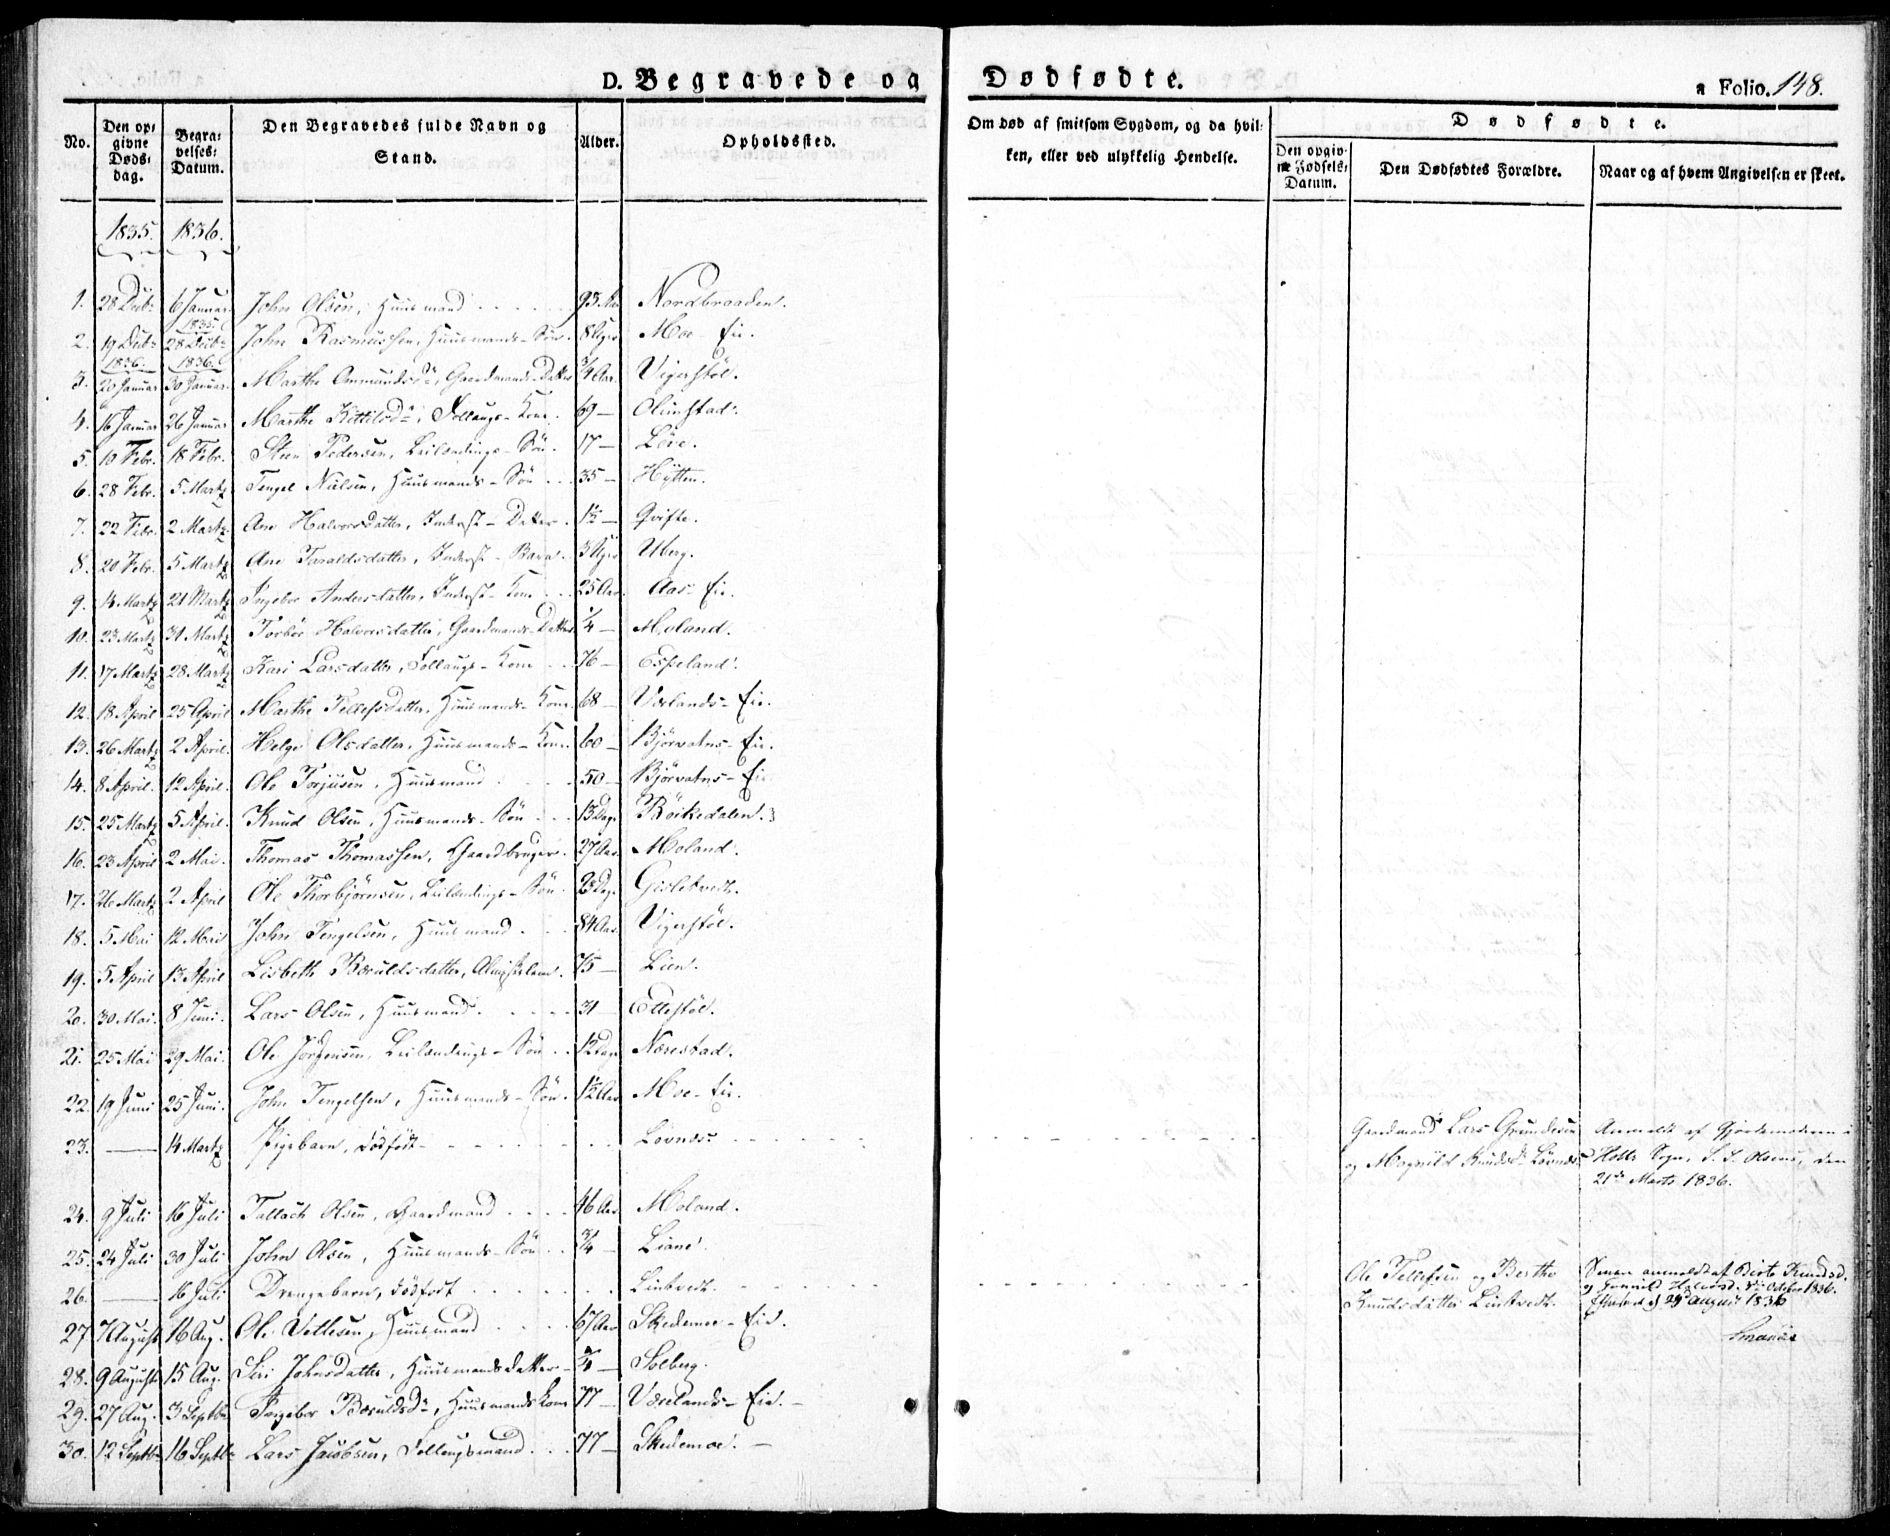 D. Begravede og Dødfødte.
a Folio. 148.
No. Den opgivne Dødsdag. Begravelses-Datum. Den Begravedes fulde Navn og Stand. Alder. Opholdssted. Om død af smitsom Sygdom, og da hvilken, eller ved ulykkelig Hendelse. Dødfødte.
Den opgivne Fødsels-Datum. Den Dødfødtes Forældre. Naar og af hvem Angivelsen er skeet.
1835. 1836.
1. 28 Decbr 6 Januar John Olsen, Huusmand 95 Aar Nordbraaden.
1835.
2. 19 Decbr 28 Decbr John Rasmussen, Huusmands-Søn. 8 Uger Moe-Eie.
1836. 1836.
3. 20 Januar 30 Januar Marthe Amundsdr, Gaardmands-Datter 3/4 Aar. Vigerstøl.
4. 16 Januar 26 Januar Marthe Kittilsdr, Follaugs-Kone. 69 — Olimstad.
5. 10 Febr. 18 Febr. Steen Pedersen, Leilændings-Søn. 17 — Løve.
6. 28 Febr. 5 Martz Tengel Nielsen, Huusmands-Søn 35 — Hytten.
7. 22 Febr. 2 Martz Ane Halvorsdatter, Inderst-Datter. 1½ — Qvifte.
8. 20 Febr. 5 Martz Ane Taraldsdatter, Inderst-Barn. 3 Uger Uberg.
9. 14 Martz 21 Martz Ingebor Andersdatter, Inderst-Kone 25 Aar. Aas-Eie.
10. 23 Martz 31 Martz Torbør Halvorsdatter, Gaardmands-Datter 1/4 — Moland.
11. 17 Martz 28 Martz Kari Larsdatter, Follaugs-Kone 76 — Espeland.
12. 18 April 25 April Marthe Tellefsdatter, Huusmands-Kone. 68 — Værlands-Eie.
13. 26 Martz 2 April. Helge Olsdatter, Huusmands-Kone. 60 — Bjørvatns-Eie.
14. 8 April. 12 April. Ole Torjusen, Huusmand 50 — Bjørvatns-Eie
15. 25 Martz 5 April. Knud Olsen, Huusmands-Søn 13 Dage Bøikedalen.
16. 23 April 2 Mai. Thomas Thomassen, Gaardbruger. 27 Aar. Moland.
17. 26 Martz 2 April Ole Thorbjørnsen, Leilændings-Søn. 23 Dage Gislekvedt.
18. 5 Mai 12 Mai John Tengelsen, Huusmand. 84 Aar. Vigerstøl.
19. 5 April 13 April Lisbeth Bæruldsdatter, Almisselem. 75 — Lien.
20. 30 Mai. 8 Juni. Lars Olsen, Huusmand. 31 — Ettestøl.
21. 25 Mai 29 Mai. Ole Jørgensen, Leilændings-Søn 12 Dage Nærestad.
22. 19 Juni 25 Juni. John Tengelsen, Huusmands-Søn. 1½ Aar Moe-Eie.
23. — 14 Martz Pigebarn, dødfødt Løvnæs Gaardmand Lars Gundersen Anmeldt af Gjordemoderen i
og Magnild Knudsdr Løvnæs Holts Sogn, S. S. Olsens, den
21de Marts 1836.
24. 9 Juli 16 Juli Tallach Olsen, Gaardmand 46 Aar Moland.
25. 24 Juli 30 Juli John Olsen, Huusmands-Søn 3/4 — Liane.
26. — 16 Juli Drengebarn, dødfødt Lintvedt. Ole Tellefsen og Berthe Senere anmeldt af Birte Knudsd.
Knudsdatter Lintvedt. og Gunnild Halvorsd. 3de October 1836.
27. 7 August 16 Aug. Ole Vetlesen, Huusmand 67 Aar Skedemoe-Eie. 29de August 1836
28. 9 August 15 Aug. Siri Johnsdatter, Huusmandsdatter 3/4 — Solberg.
29. 27 Aug. 3 Septbr Ingebor Bæruldsdr, Huusmandskone 77 — Væuelands-Eie.
30. 12 Septbr 16 Septbr Lars Jacobsen, Follaugsmand 77 — Skedemoe.